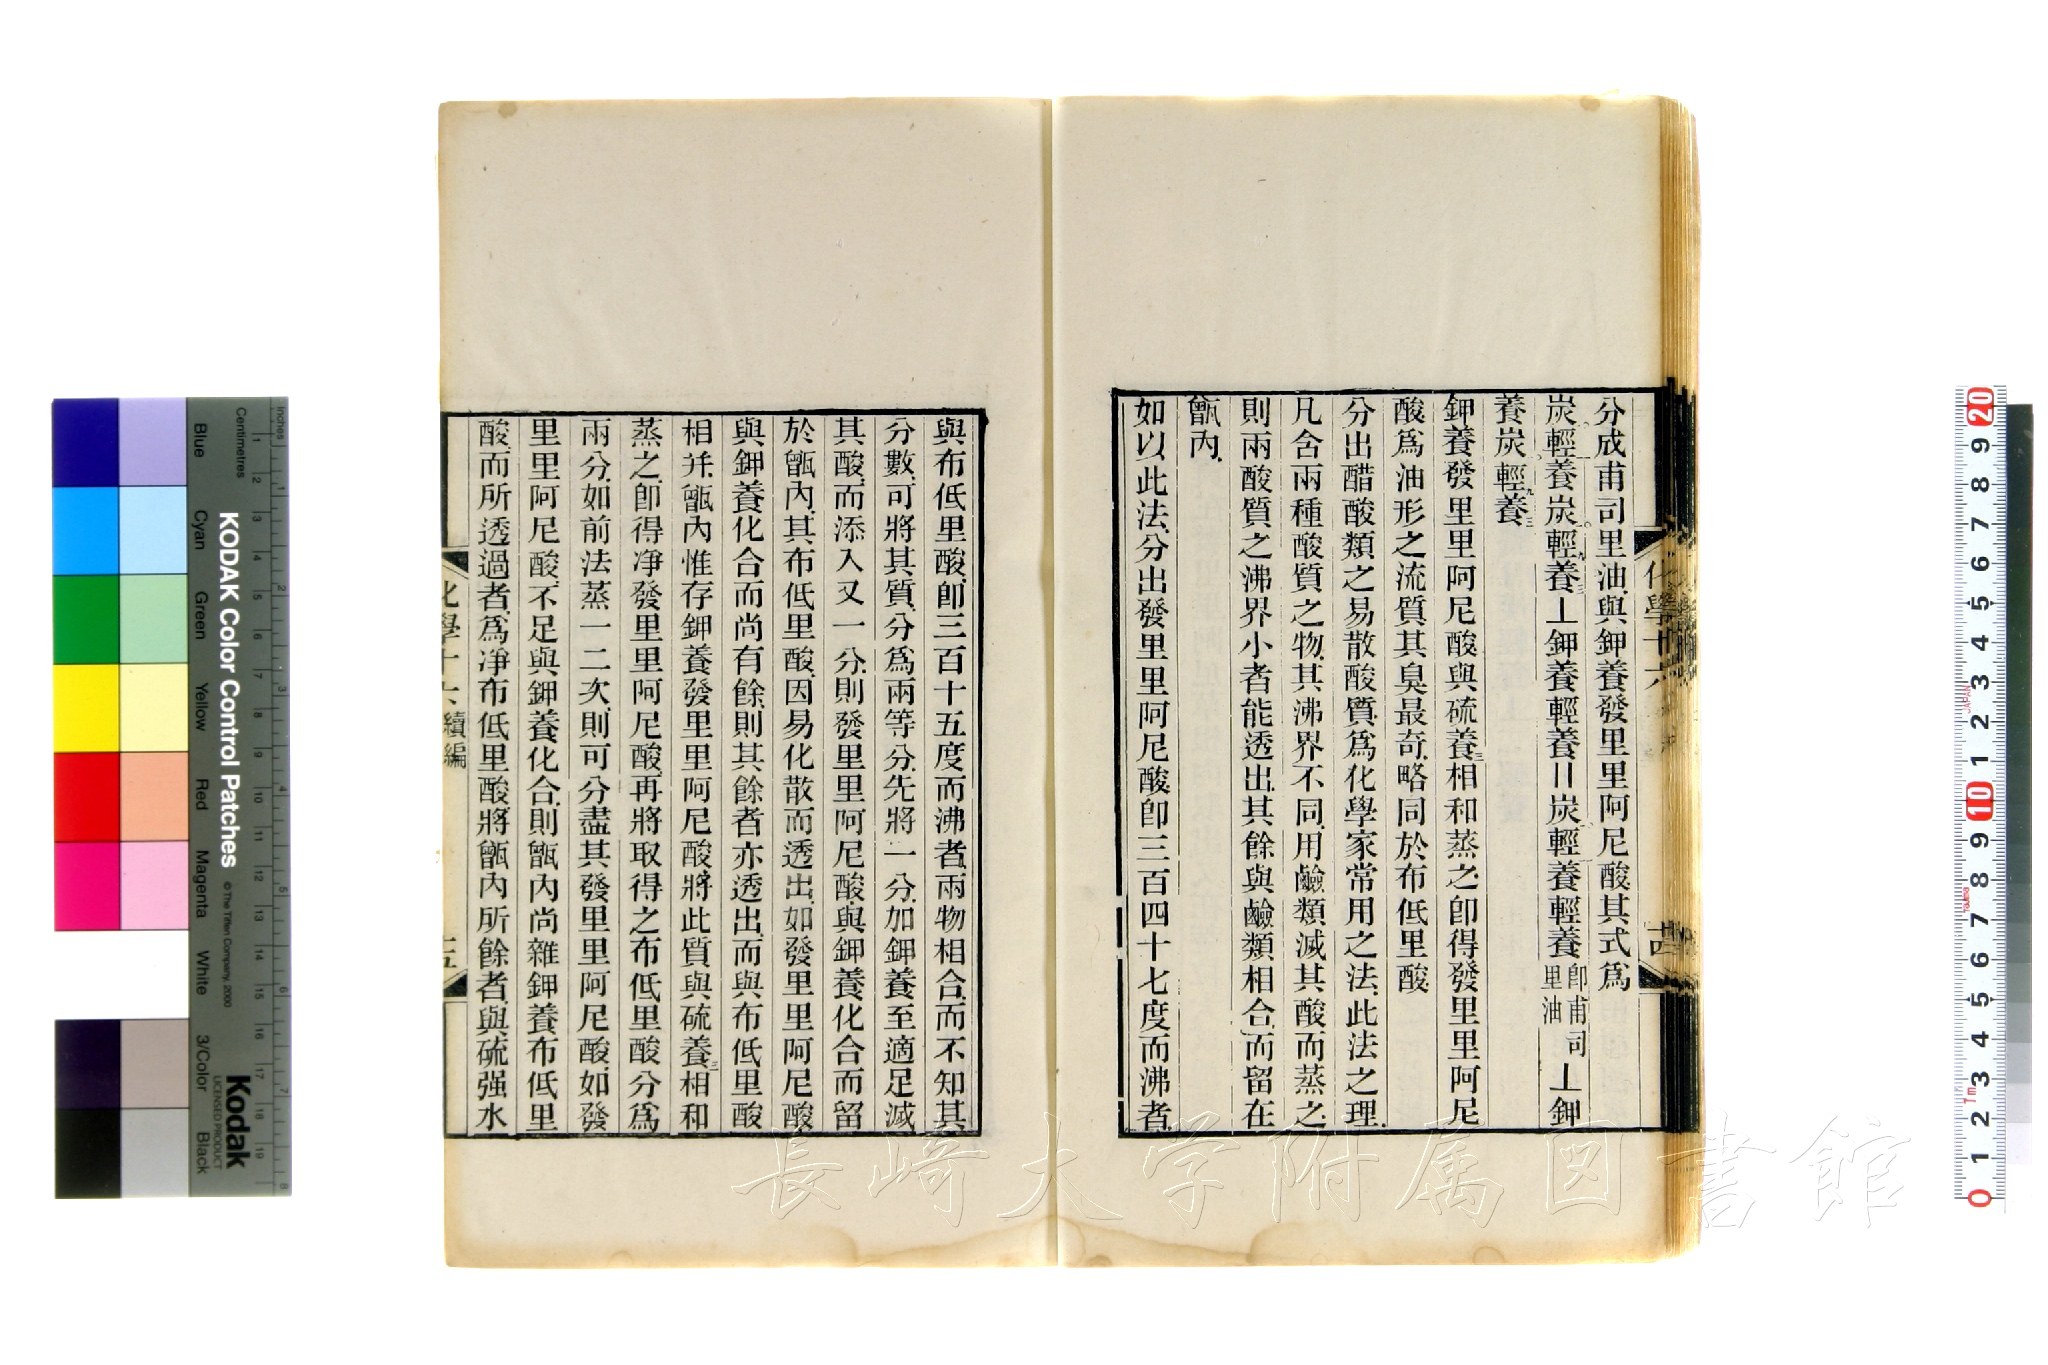 分成甫司里油與鉀養發里里阿尼酸其式爲
炭輕養炭輕養⊥鉀養輕養〢炭輕養輕養卽甫司里油⊥鉀
養炭輕養
鉀養發里里阿尼酸與硫養三相和蒸之卽得發里里阿尼
酸爲油形之流質其臭最奇略同於布低里酸
分出醋酸類之易散酸質爲化學家常用之法此法之理
凡含兩種酸質之物其沸界不同用鹼類滅其酸而蒸之
則兩酸質之沸界小者能透出其餘與鹼類相合而留在
甑內
如以此法分出發里里阿尼酸卽三百四十七度而沸者
化學十六
十四
與布低里酸卽三百十五度而沸者兩物相合而不知其
分數可將其質分爲兩等分先將一分加鉀養至適足滅
其酸而添入又一分則發里里阿尼酸與鉀養化合而留
於甑內其布低里酸因易化散而透出如發里里阿尼酸
與鉀養化合而尚有餘則其餘者亦透出而與布低里酸
相并甑內惟存鉀養發里里阿尼酸將此質與硫養三相和
蒸之卽得淨發里里阿尼酸再將取得之布低里酸分爲
兩分如前法蒸一二次則可分盡其發里里阿尼酸如發
里里阿尼酸不足與鉀養化合則甑內尚雜鉀養布低里
酸而所透過者爲淨布低里酸將甑內所餘者與硫强水
化學十六續編
十五
長崎大学附属図書館
Inches
Centimetres
KODAK Color Control Patches
© The Tiffen Company, 2000
Kodak
LICENSED PRODUCT
Blue
Cyan
Green
Yellow
Red
Magenta
White
3/Color
Black